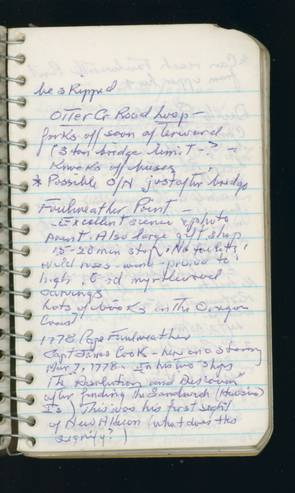 be skipped
Otter Cr Road Loop -
forks off soon at Leeward
(3 ton bridge limit - ? -
* Possible O/N just after bridge
Foulweather Point -
- Excellent scenic photo
point. Also large gift shop
15-20 min stop. No toilets!
wild roses - wind prone to
high. Good myrtlewood
carvings
Lots of books on the Oregon
Coast
1778 Cape Foulweather
Capt James Cook - here on a stormy
Mar 7, 1778. In his two ships
The Resolution and Discovery
after finding the Sandwich (Hawaiian
Is.) This was his first sight
of New Albion (what does this
signify?)